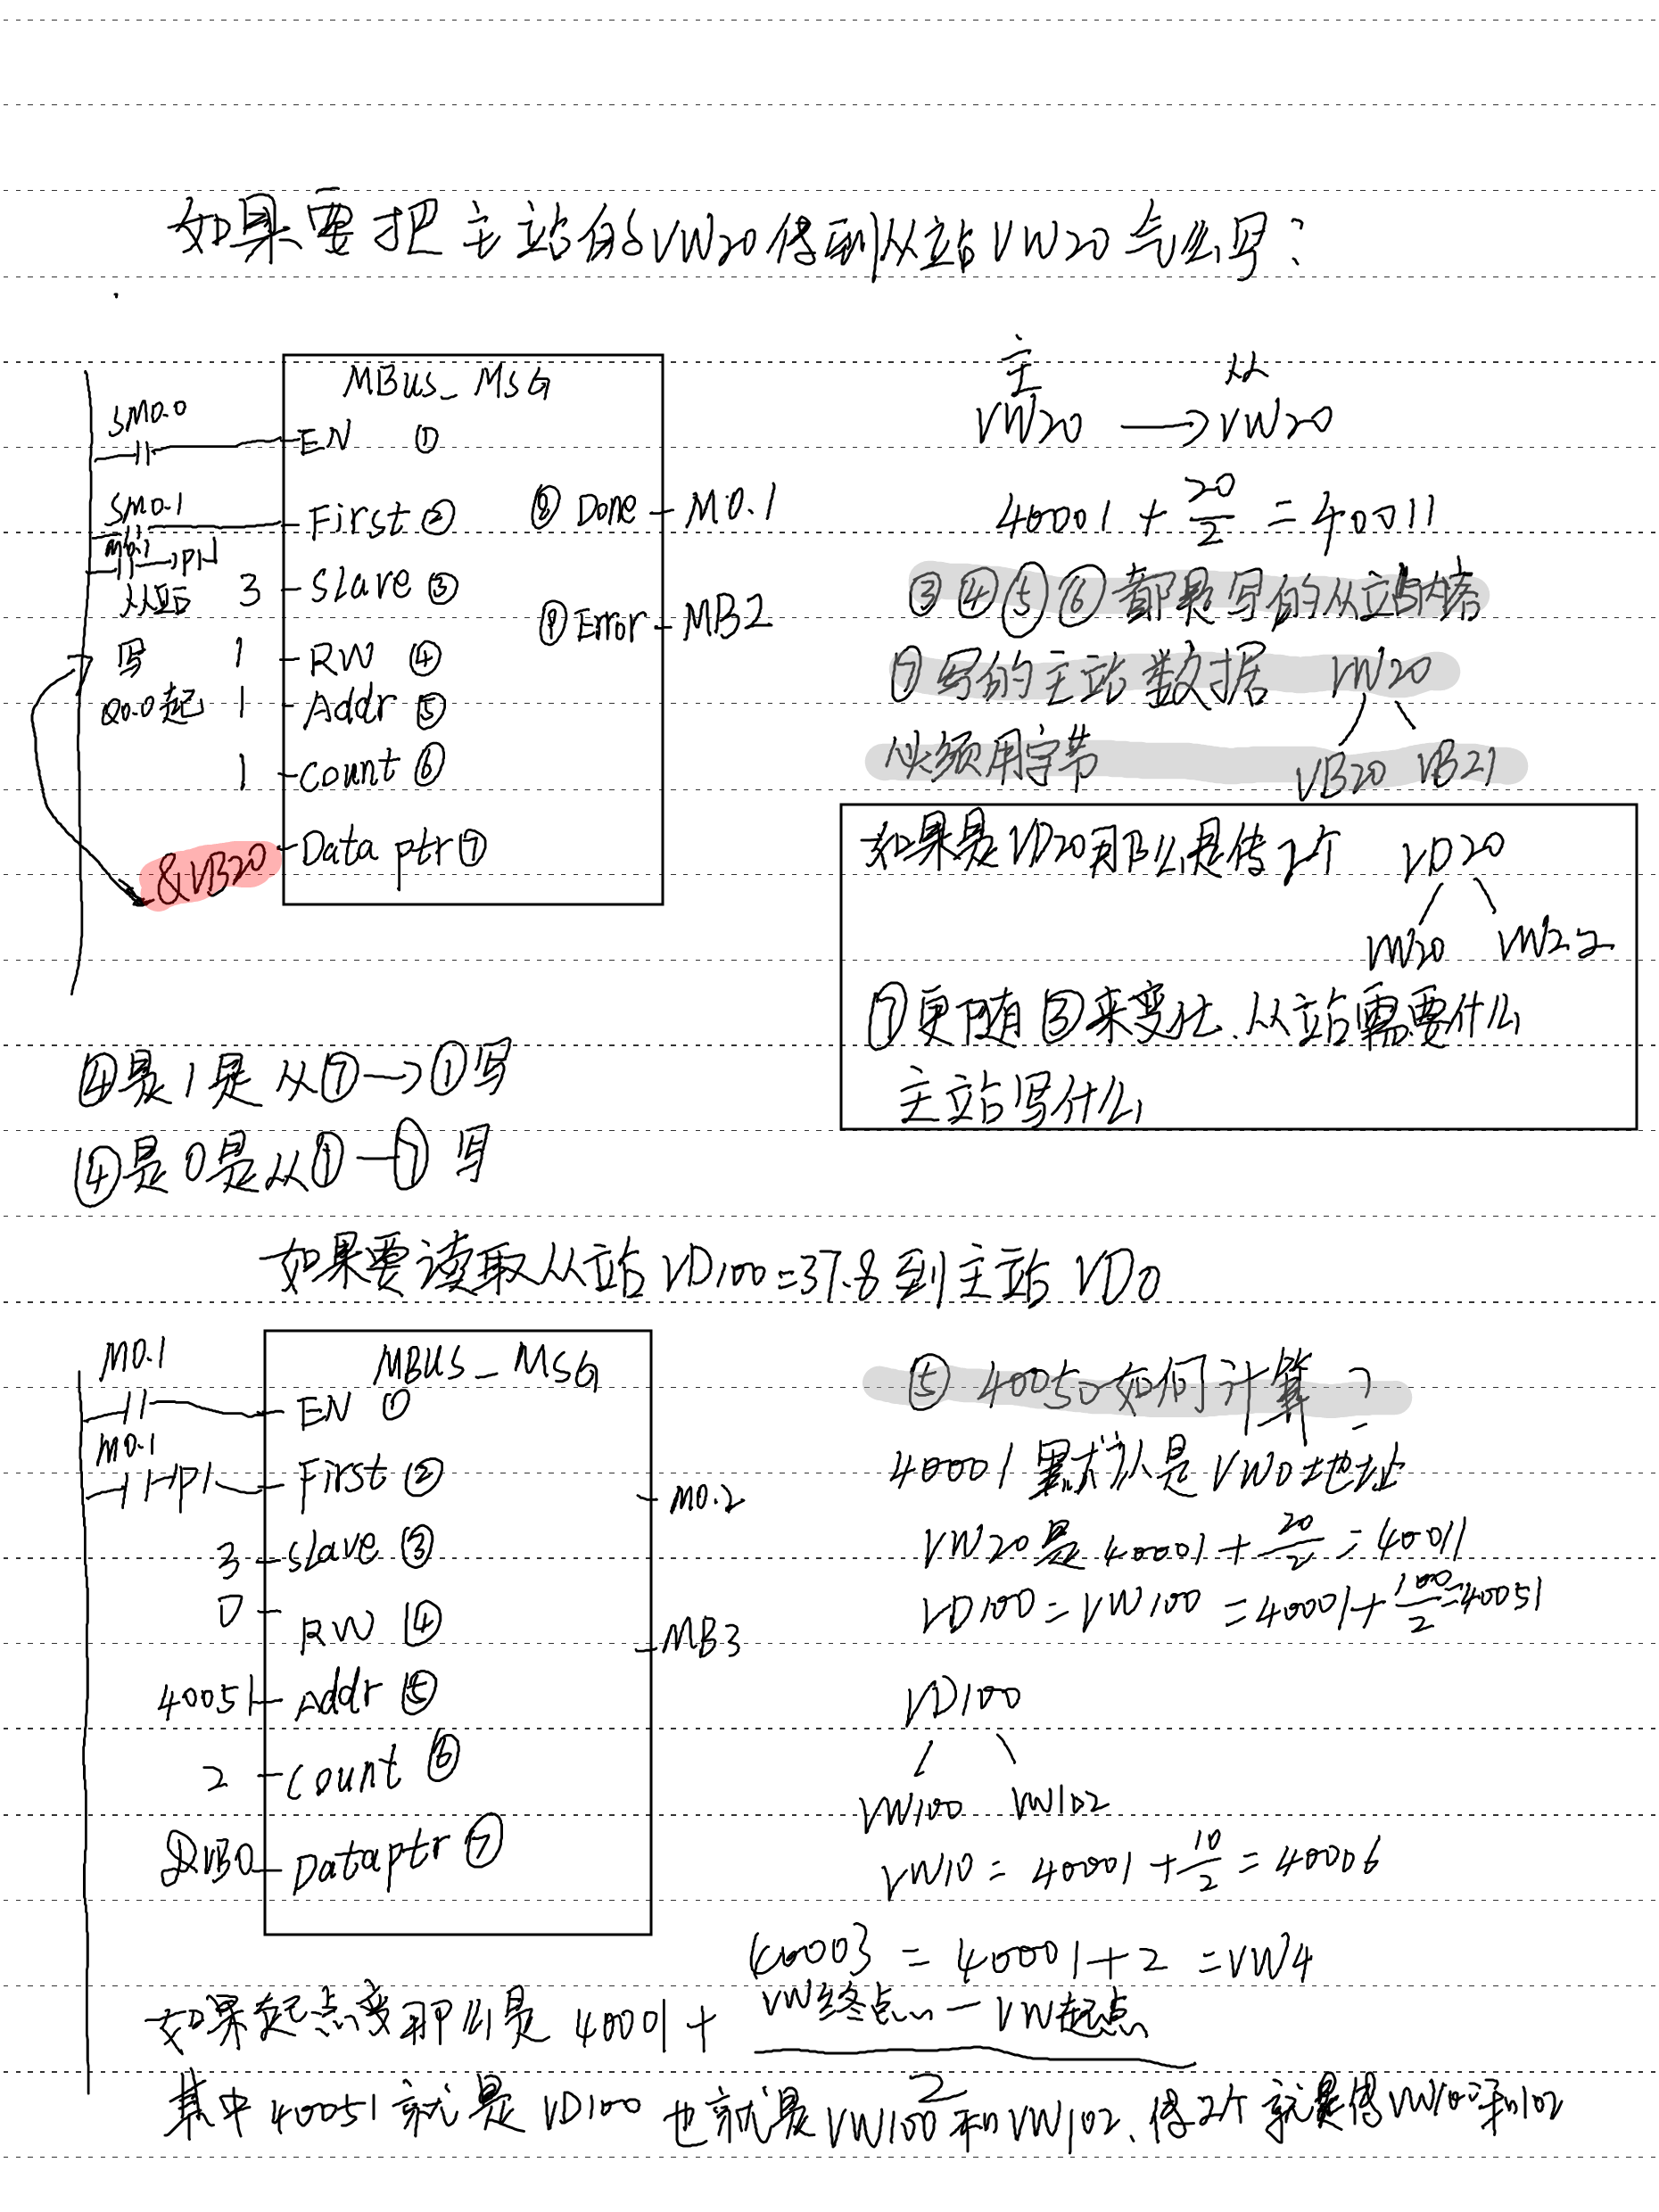 如果要把主站的VW20传到从站VW20怎么写?
MBUS_MSG
SM0.0
EN ①
SM0.1
First ②
⑧ Done M0.1
M0.1
P
从站 3 Slave ③
⑨ Error MB2
写 1 RW ④
Q0.0起 1 Addr ⑤
1 Count ⑥
&VB20 Data ptr ⑦
主 从
VW20 → VW20
40001 + 20/2 = 40011
③④⑤⑥都是写的从站内容
⑦写的主站数据 VW20
必须用字节 VB20 VB21
如果是VD20那么是传2个 VD20
VW20 VW22
⑦更随③来变化.从站需要什么
主站写什么
④是1是从⑦→①写
④是0是从①—⑦写
如果要读取从站VD100=37.8到主站VD0
MBUS_MSG
M0.1
EN ①
M0.1
P
First ②
M0.2
3 Slave ③
0 RW ④
MB3
40051 Addr ⑤
2 Count ⑥
&VB0 Dataptr ⑦
⑤ 40050如何计算?
40001默认是VW0地址
VW20是40001+20/2=40011
VD100=VW100=40001+100/2=40051
VD100
VW100 VW102
VW10=40001+10/2=40006
40003=40001+2=VW4
如果起点变那么是 40001+ VW终点-VW起点/2
其中40051就是VD100也就是VW100和VW102、传2个就是传VW100和102